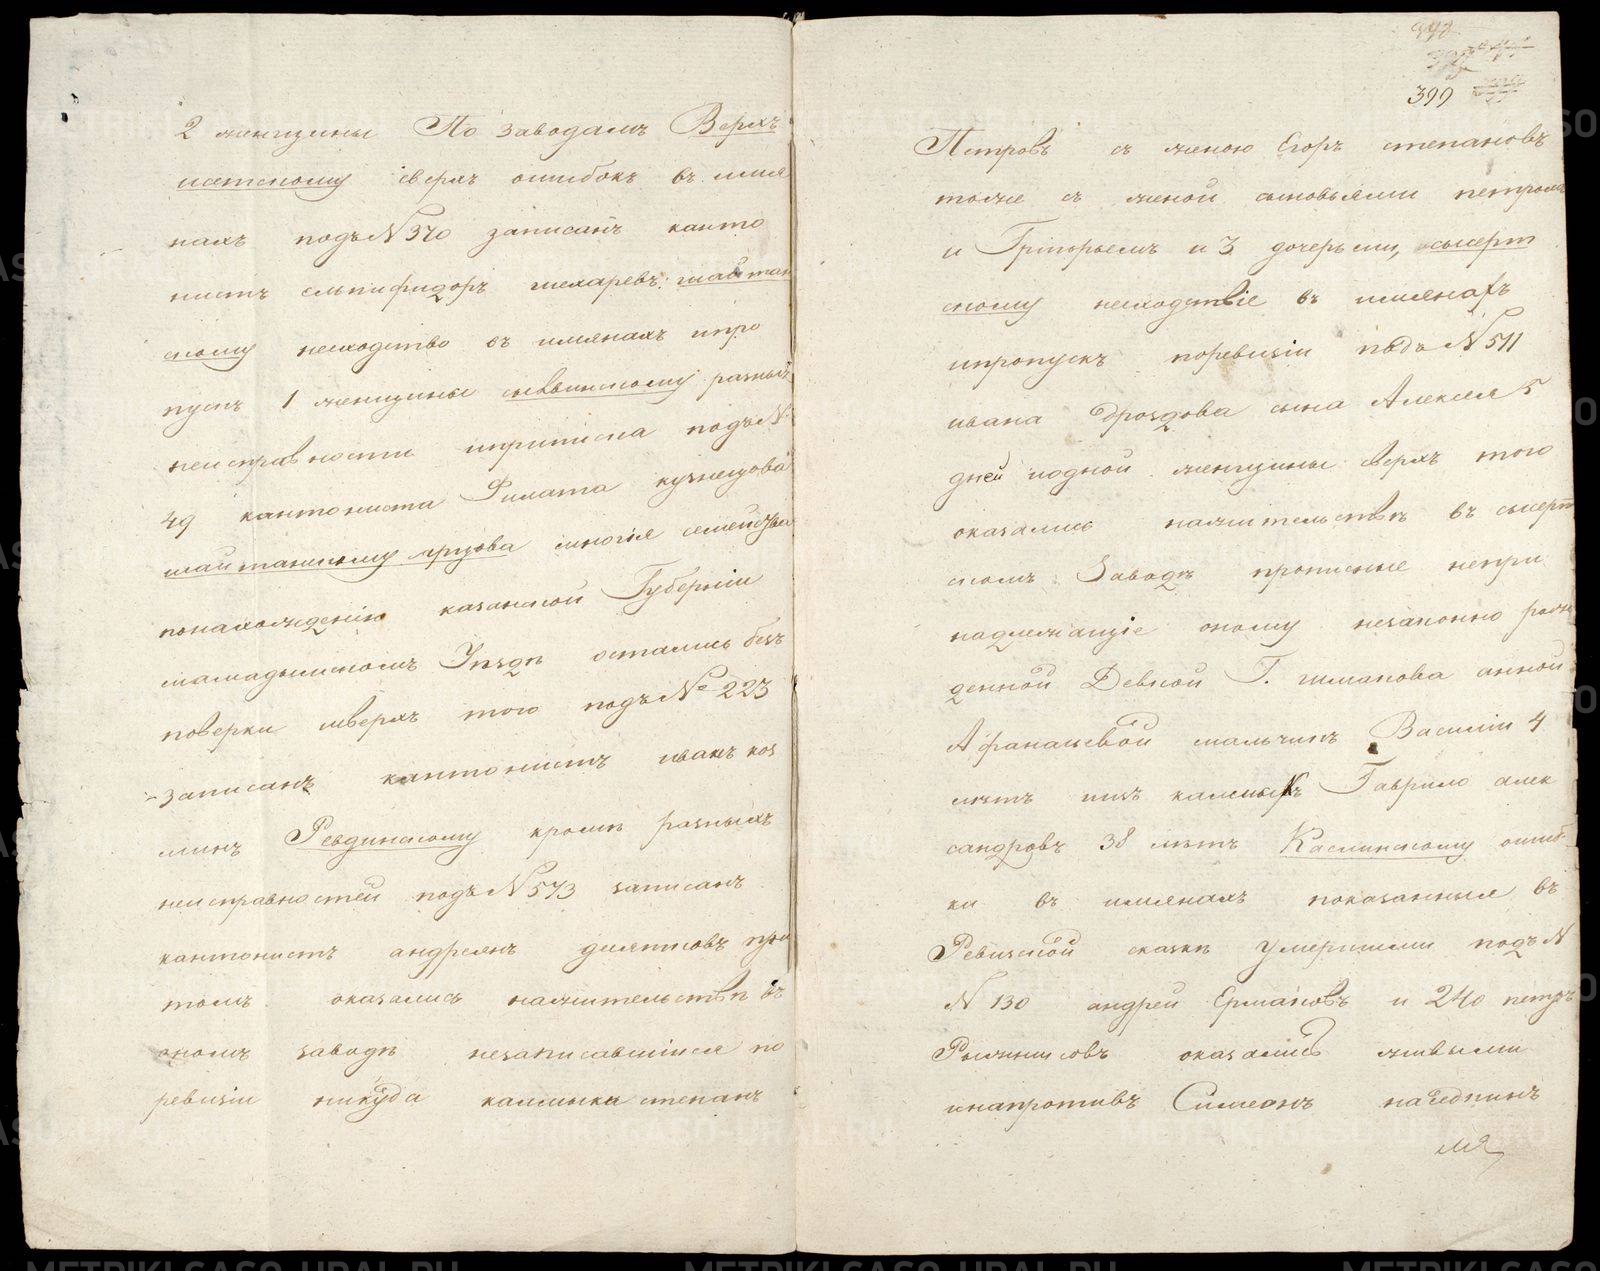 2 женщины По заводамъ Верхъ
исетскому сверхъ ошибокъ въ имя
нахъ подъ N 370 записанъканто
нистъ елпифидоръ шехаревъ: шайтан
скому несходство въ имянахъ ипро
пускъ 1 женщины сылвинскому разныя
неисправности иприписка подъ N:
49 кантониста Филата кузнецова
шайтанскому ярцова многія семейства
понахожденію казанской Губерніи
мамадышскомъ Уѣздѣ остались безъ
поверки исверхъ того подъ № 223
записанъ кантонистъ иванъ коз
минъ Ревдинскому кромѣ разныхъ
неисправностей подъ N 573 записанъ
кантонистъ андреянъ девятковъ при
томъ оказались нажительствѣ въ
ономъ заводѣ незаписавшіися по
ревизіи никуда калмыки степанъ
399
Петровъ съ женою Егоръ степановъ
тоже съ женой сыновьями петромъ
и Григорьемъ и 3 дочерьми, сысерт
скому несходствіе въ имянахъ
ипропускъ поревизіи подъ N 511
ивана Дроздова сына Алексея 5
дней иодной женщины сверхъ того
оказались нажительствѣ въ сысерт
скомъ Заводѣ прописные непри
надлежащіе оному незаконно рож
денной Девкой Г. шмакова анной
Афанасьевой мальчикъ Василій 4
лѣтъ изъ калмыкъ Гаврило алек
сандровъ 38 лѣтъ Каслинскому ошиб
ки въ имянахъ показанныя въ
Ревизской сказкѣ умершими подъ N
N 130 андрей Ермаковъ и 240 петръ
оказались живыми
инапротивъ Симеонъ